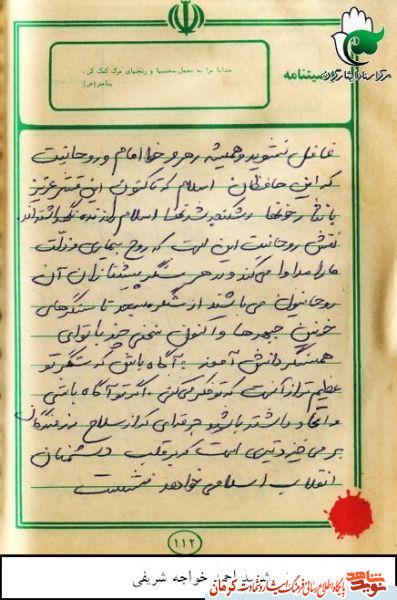 مرکز اسناد ایثارگران
وصیتنامه
خدایا مرا به تحمل سختیها و رنجهای مرگ کمک کن.
پیامبر (ص)
غافل نشوید و همیشه رهرو خط امام و روحانیت
که این حافظان اسلام که تاکنون این قشر عزیز
با زخمها و شکنجه شدنها اسلام را زنده نگهداشته‌اند
نقش روحانیت این است که روح بیماری و ذلت
ما را مداوا می‌کند و در هر سنگر پیشتازان آن
روحانیون می‌باشند از سنگر مسجد تا سنگرهای
خونین جبهه‌ها و اکنون سخنی چند با توای
همسنگر دانش‌آموز به آگاه باش که سنگر تو
عظیم‌تر از آنست که تو فکر می‌کنی اگر تو آگاه باشی
و اتحاد داشته باشید هر صدای که از سلاح رزمندگان
بر می‌خیزد تیری است که بر قلب دشمنان
انقلاب اسلامی خواهد نشست
۱۱۲
شهید احمد خواجه شریفی
نوید شاهد
پایگاه اطلاع رسانی فرهنگ ایثار و شهادت کرمان